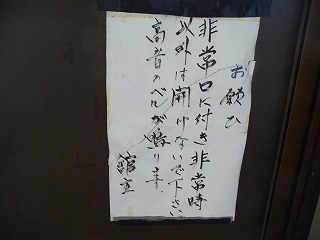 お願ひ
非常口に付き非常時
以外は開けないで下さい
高音のベルが鳴ります
舘主